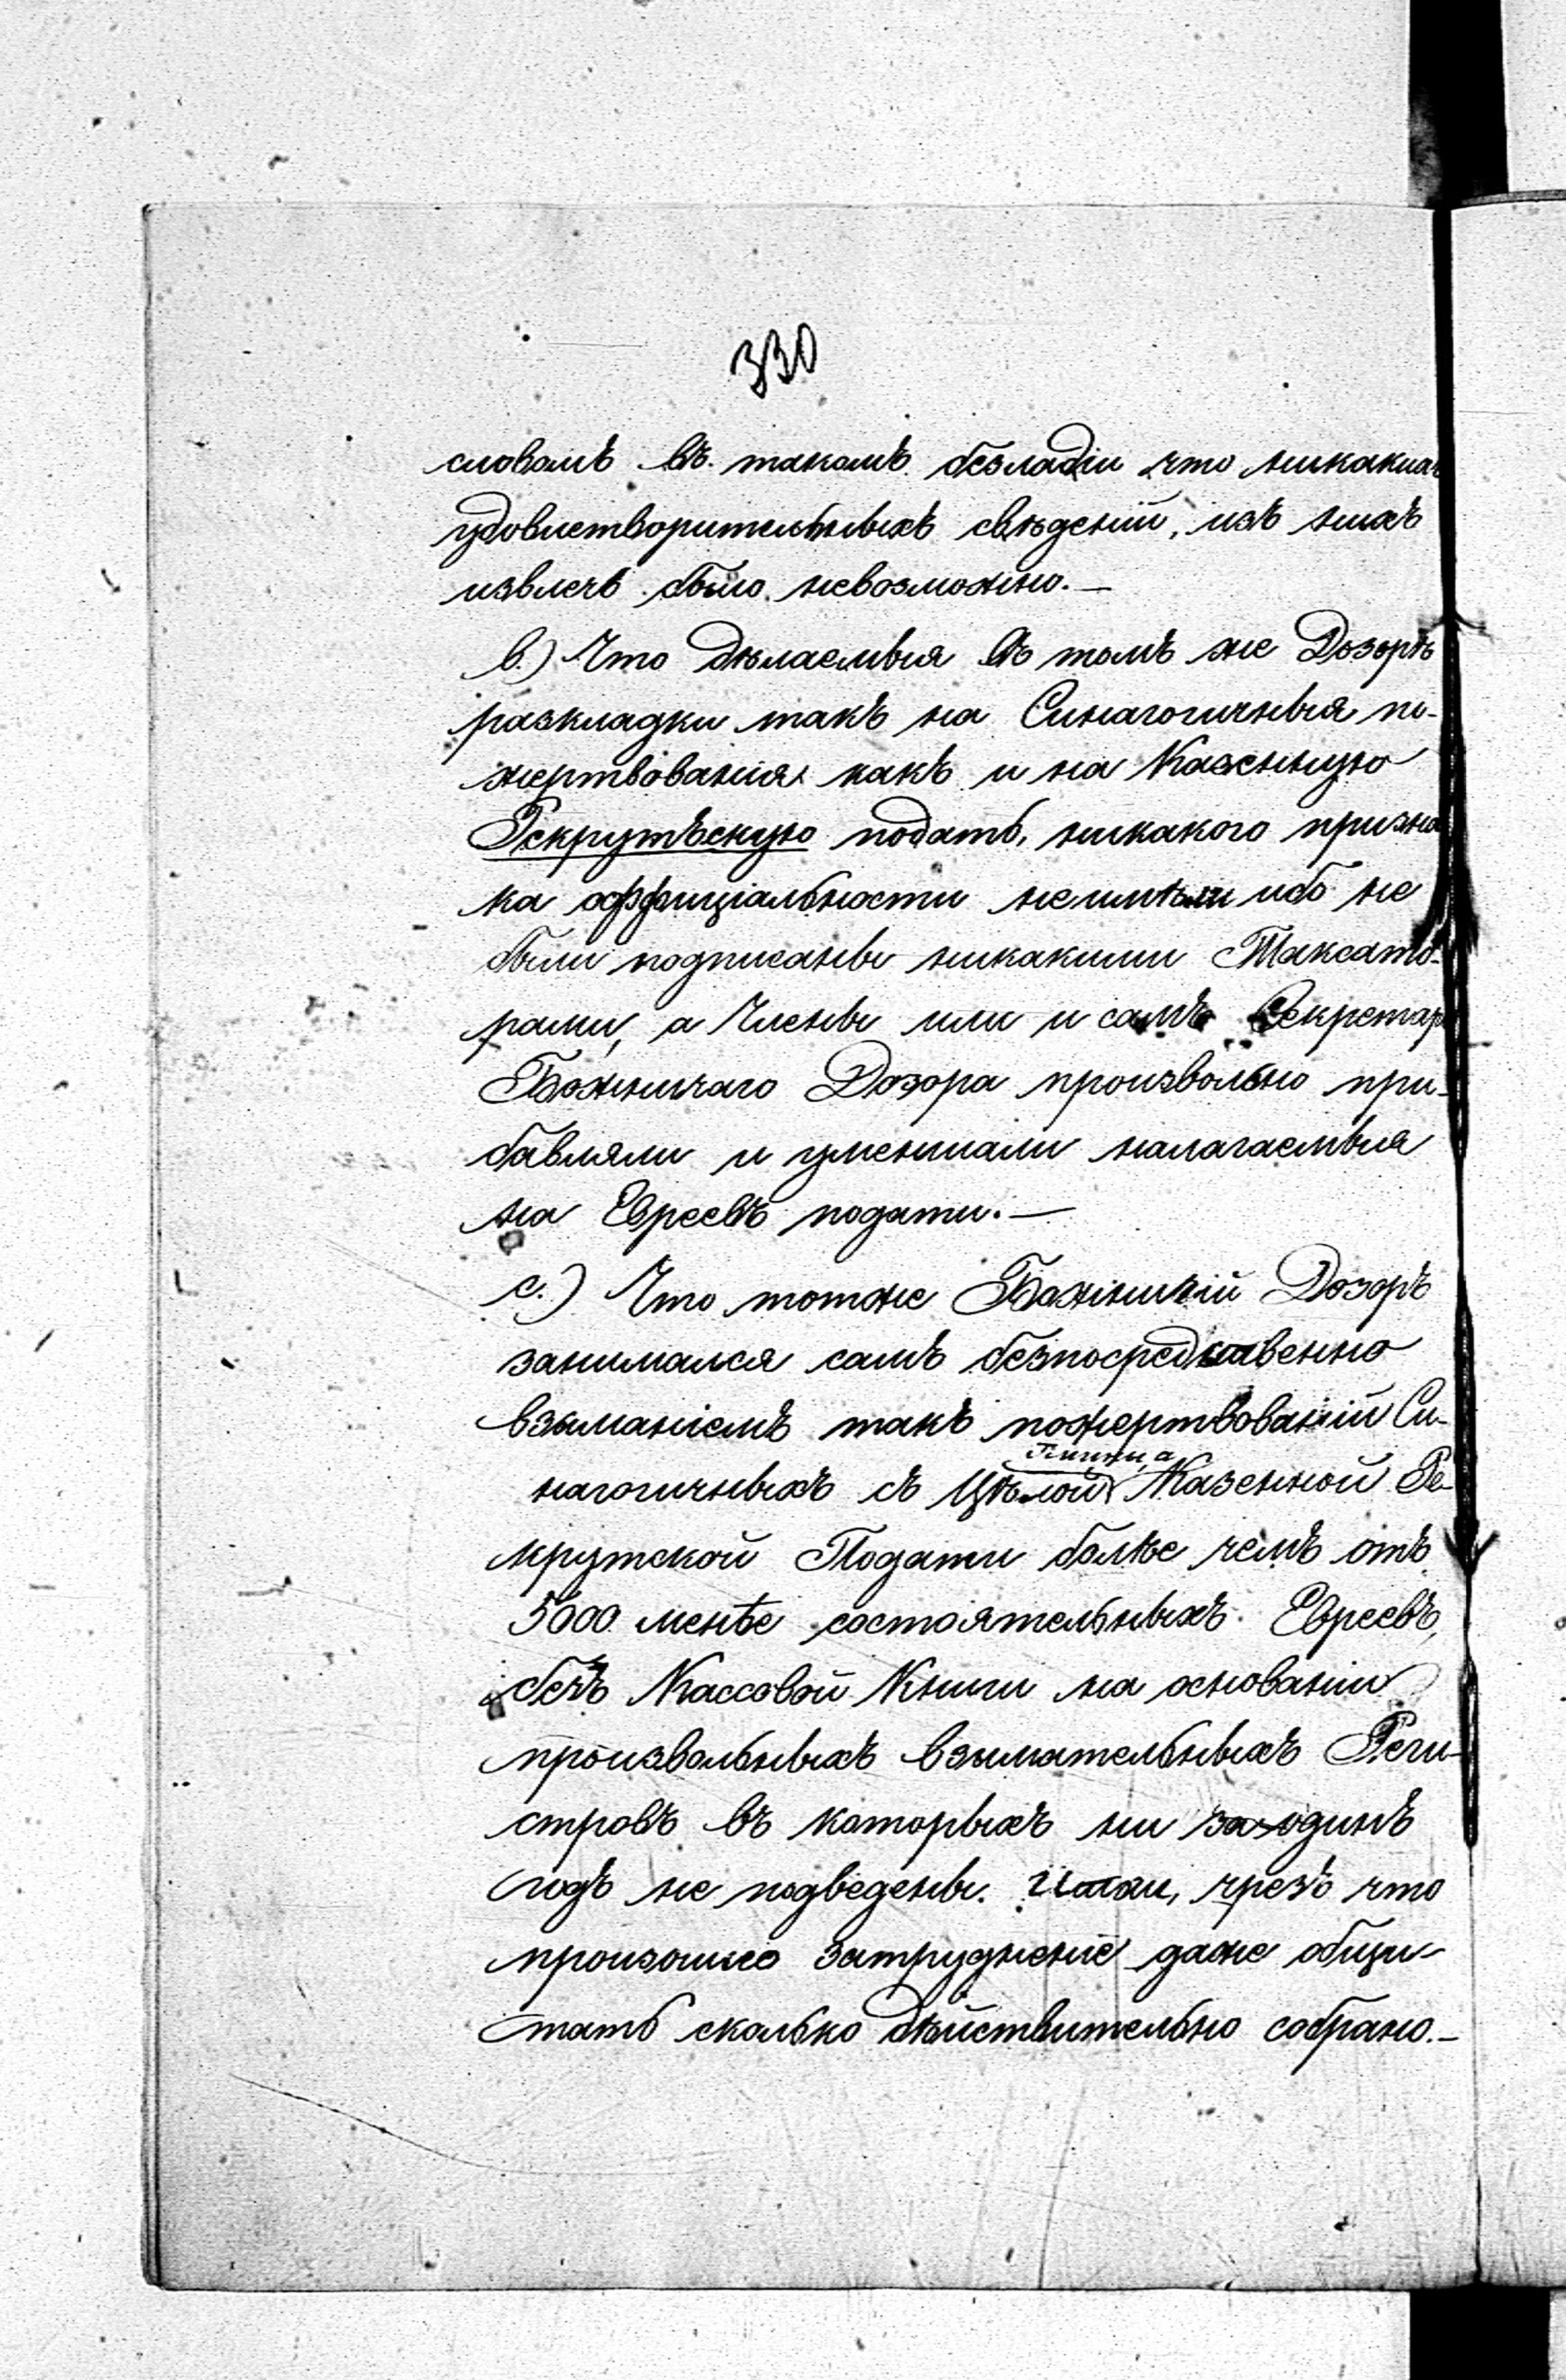 330
словомъ въ такомъ безладіи что никаких
удовлетворительныхъ свѣденій, изъ нихъ
извлечь было невозможно.—
в.) Что дѣлаемыя въ томъ же Дозорѣ
разкладки такъ на Синагогичныя по-
жертвования какъ и на Казенную
Рекрутьскую подать, никакого призна
ка оффиціальности неимѣли ибо не
были подписаны никакими Таксато-
рами, а Члены или и самъ Секретар
Божничаго Дозора произвольно при-
бавляли и уменшали налагаемыя
на Евреевъ подати.—
с.) Что тотже Божничій Дозоръ
занимался самъ безпосредственно
взыманіемъ такъ пожертвованій Си-
нагогичныхъ съ Цѣлой Гмины, а Казенной Ре-
крутской Подати болѣе чемъ отъ
5000 менѣе состоятельныхъ Евреевъ,
безъ Кассовой Книги на основании
произвольныхъ взымательныхъ Реги-
стровъ въ которыхъ ни за одинъ
годъ не подведены Итоги, чрезъ что
произошло затрудненіе даже общи-
тать сколько дѣйствительно собрано.—